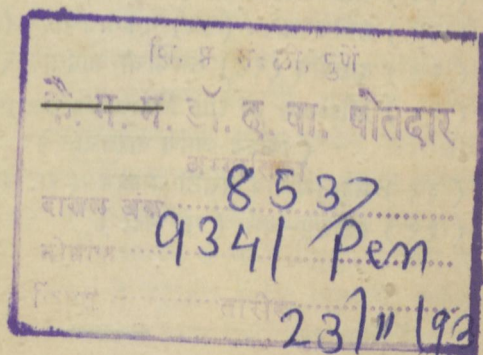 शि. प्र. मं. ली. पुणे
कै. म. म. डॉ. द. वा. पोतदार
दाखल अंक 8537
9341 Pen
तारीख 23/11/92